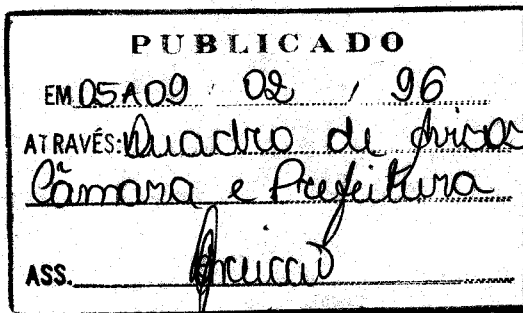 PUBLICADO
EM 05A09 / 02 / 96
ATRAVÉS: Quadro de Avisos
Câmara e Prefeitura
ASS.